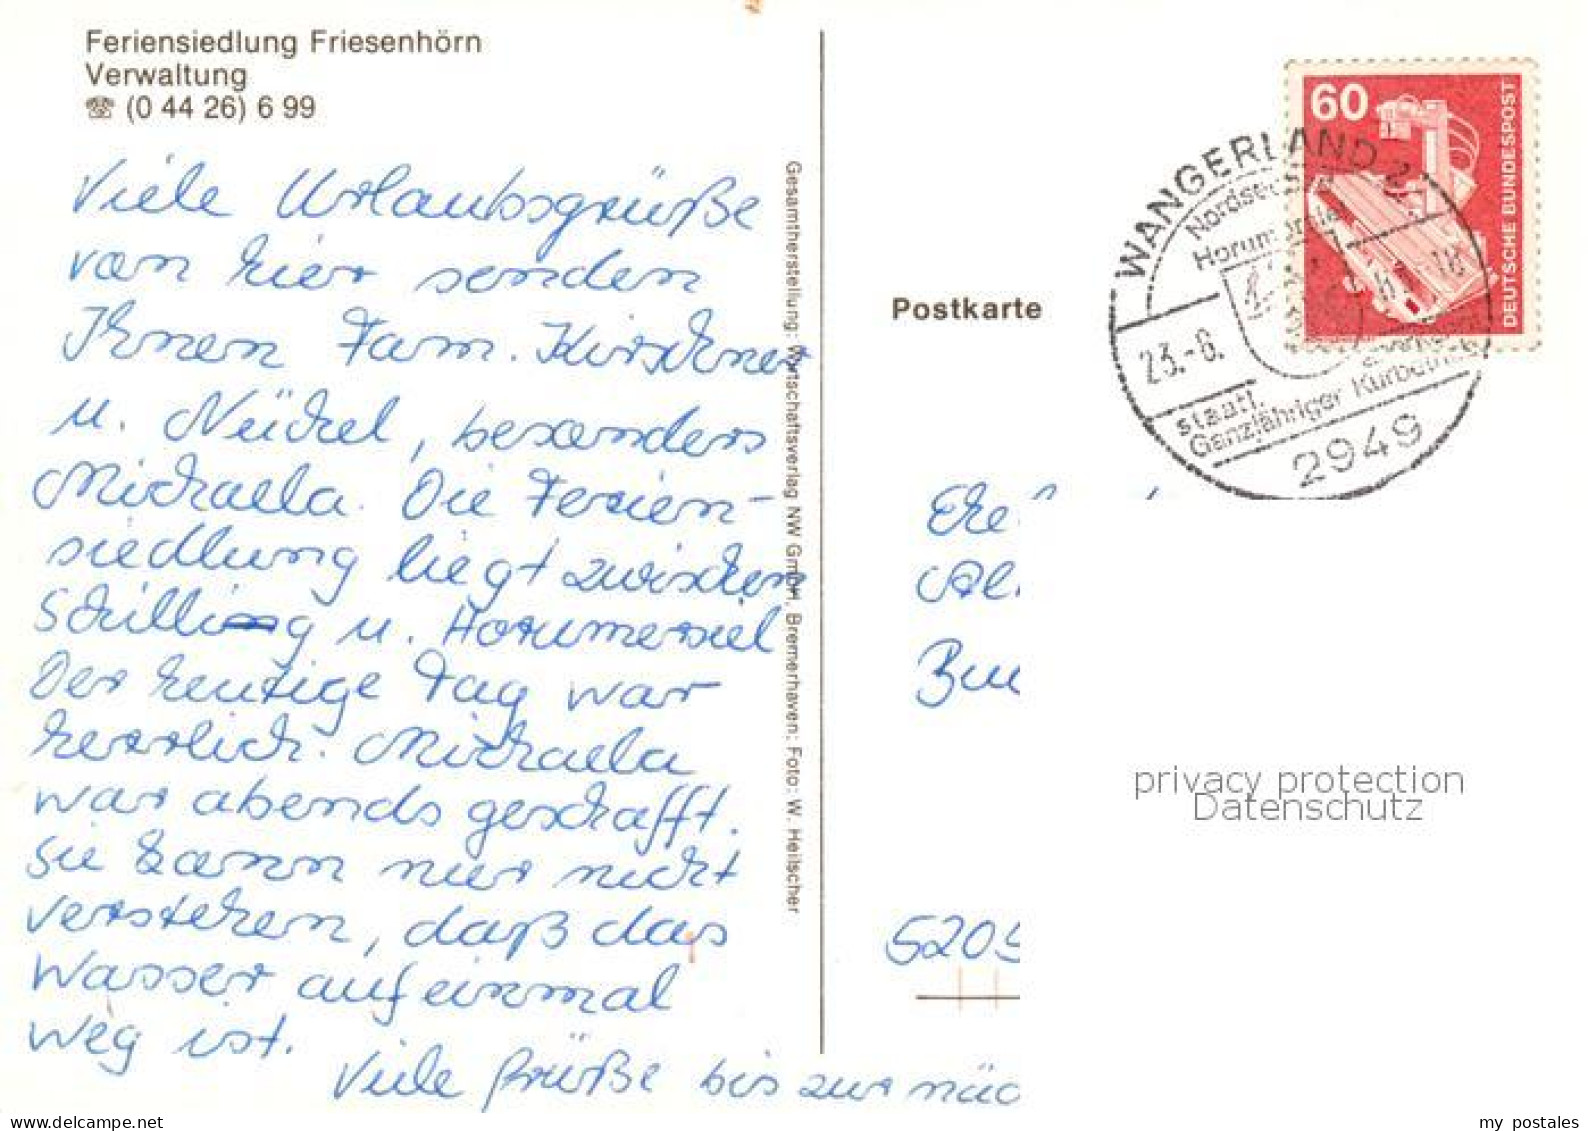 Feriensiedlung Friesenhörn
Verwaltung
☏ (0 44 26) 6 99
Viele Urlaubsgrüße
von hier senden
Ihnen Fam. Kirschner
u. Nückel, besonders
Michaela. Die Ferien-
siedlung liegt zwischen
Schillig u. Horumersiel
Der heutige Tag war
herrlich. Michaela
war abends geschafft.
Sie kann nur nicht
verstehen, daß das
Wasser auf einmal
weg ist.
Viele Grüße bis zur näc
Gesamtherstellung: Wirtschaftsverlag NW GmbH, Bremerhaven: Foto: W. Heilscher
Postkarte
60
DEUTSCHE BUNDESPOST
WANGERLAND 2
23.-8.
-18
staatl.
Ganzjähriger
2949
5205
privacy protection
Datenschutz
delcampe.net
my_postales